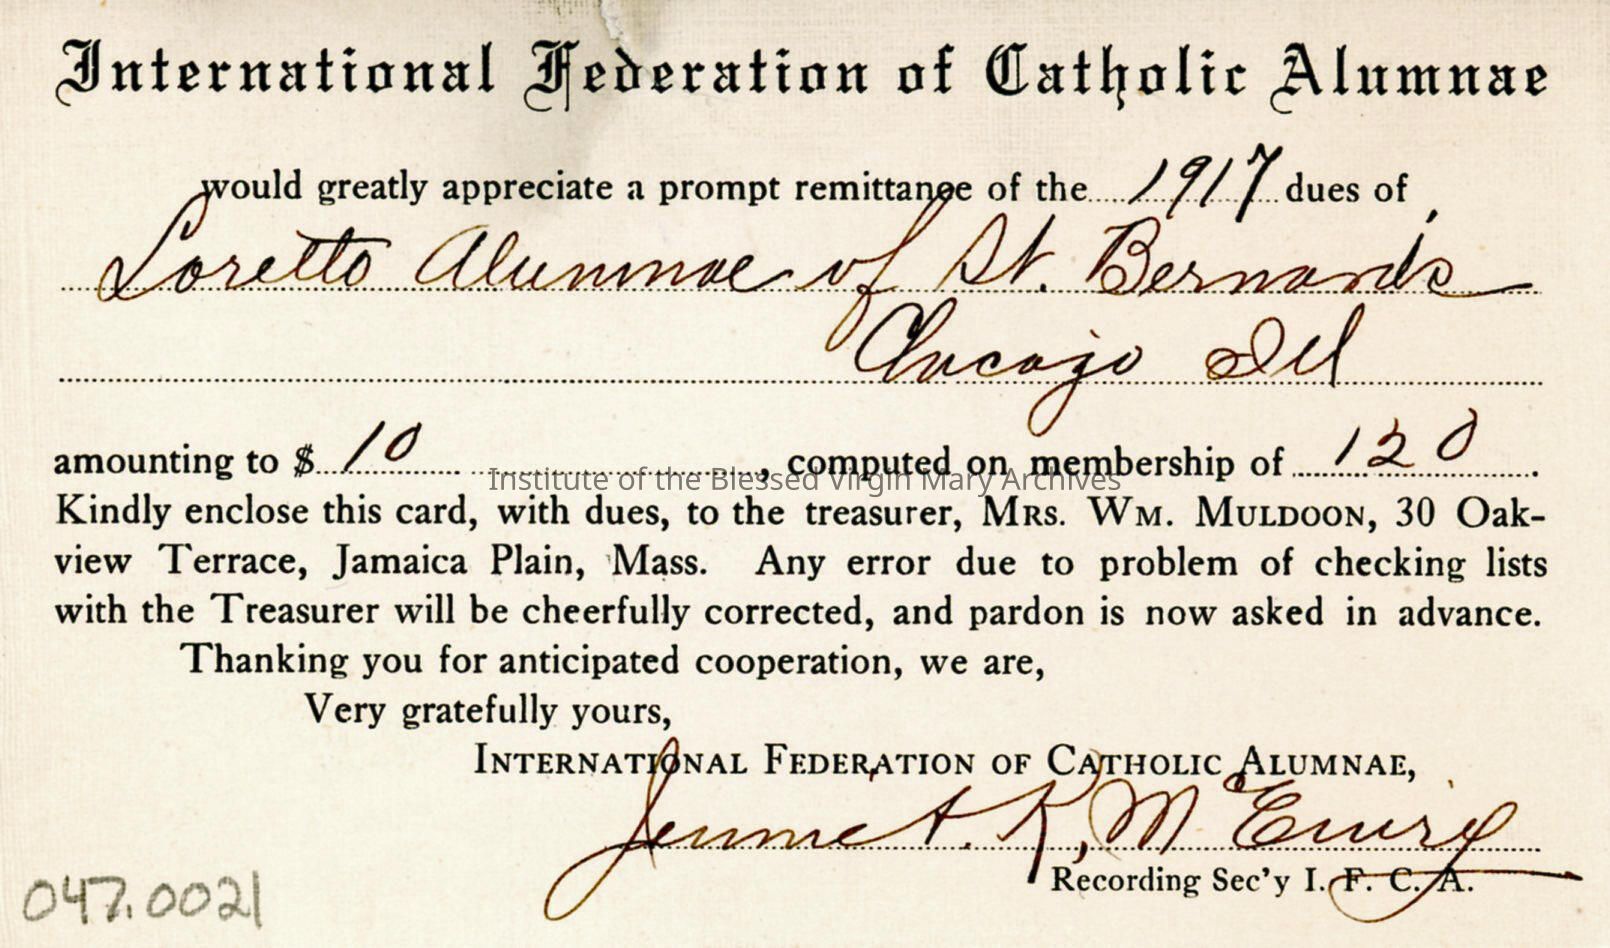 International Federation of Catholic Alumnae
would greatly appreciate a prompt remittance of the 1917 dues of
Loretto Alumnae of St. Bernard's
Chicago Ill
amounting to $ 10, computed on membership of 120.
Institute of the Blessed Virgin Mary Archives
Kindly enclose this card, with dues, to the treasurer, MRS. WM. MULDOON, 30 Oak-
view Terrace, Jamaica Plain, Mass. Any error due to problem of checking lists
with the Treasurer will be cheerfully corrected, and pardon is now asked in advance.
Thanking you for anticipated cooperation, we are,
Very gratefully yours,
INTERNATIONAL FEDERATION OF CATHOLIC ALUMNAE,
K. McEwing
Recording Sec'y I. F. C. A.
047.0021